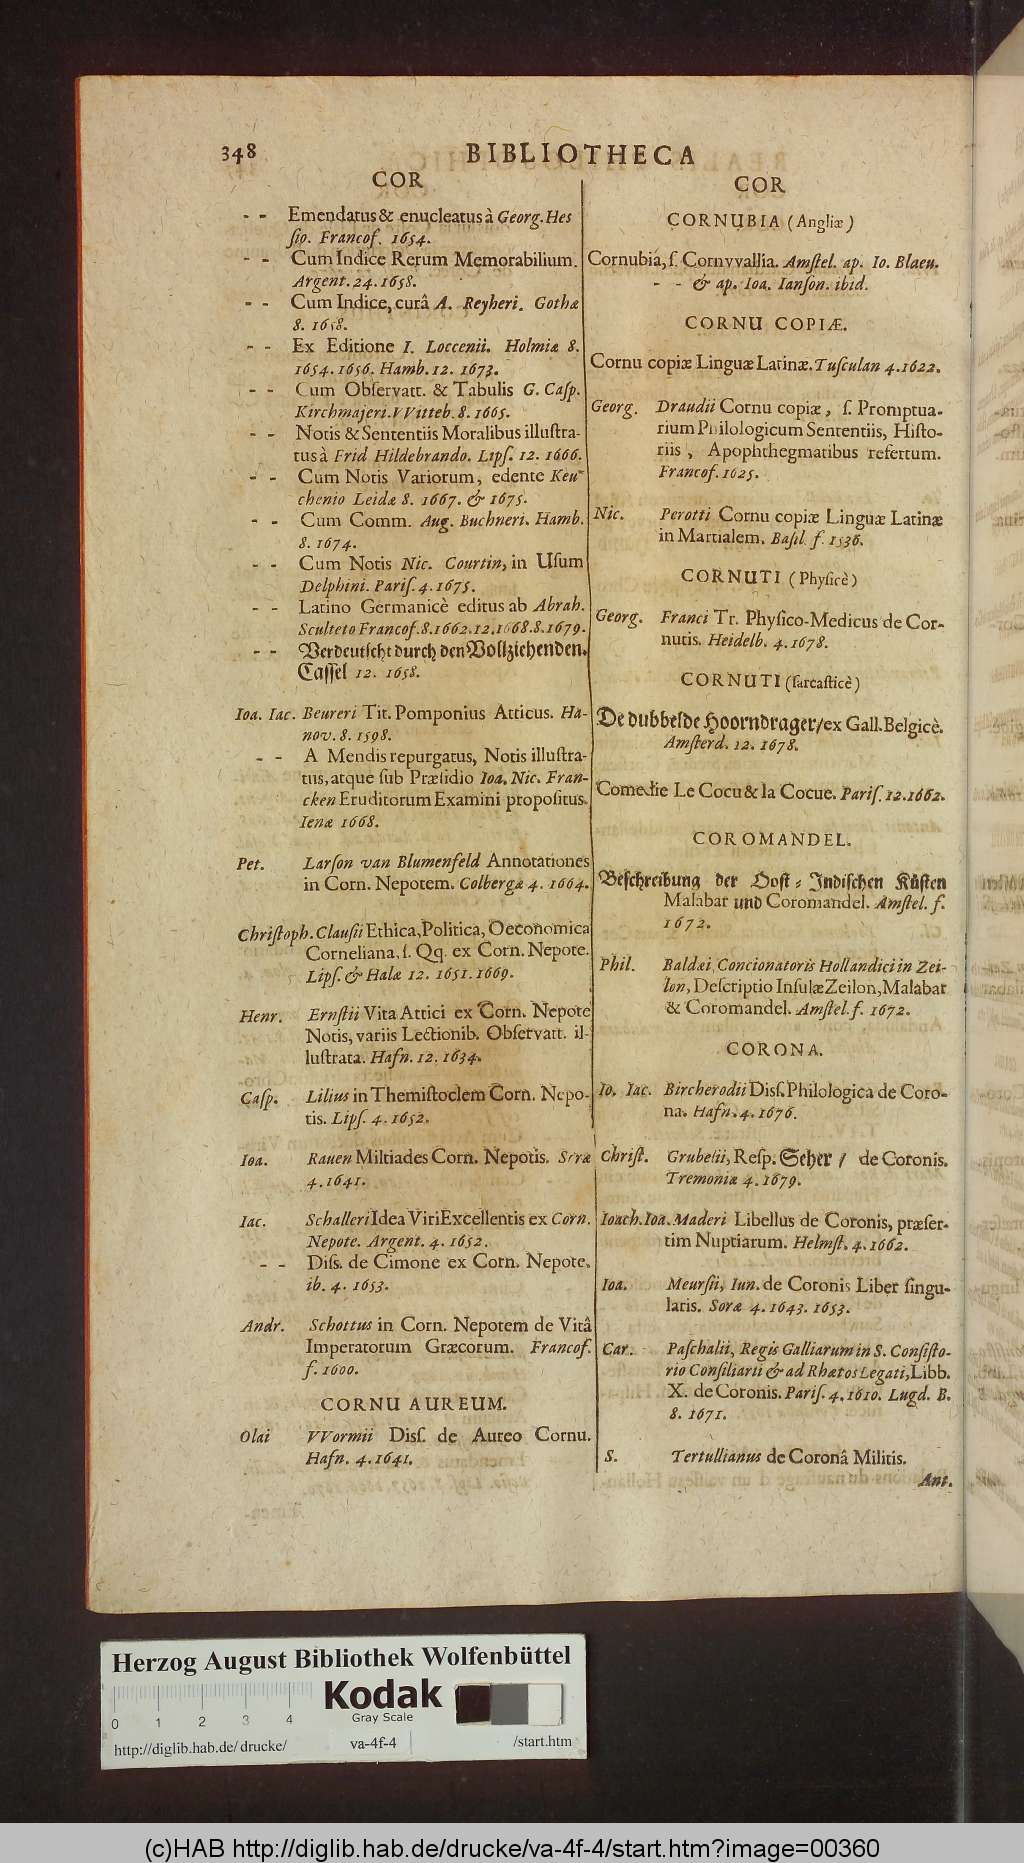 348
BIBLIOTHECA
COR
- - Emendatus & enucleatus à Georg. Hes
ſio. Francof. 1654.
- - Cum Indice Rerum Memorabilium.
Argent. 24. 1658.
- - Cum Indice, curâ A. Reyheri. Gothæ
8. 1658.
- - Ex Editione I. Loccenii. Holmiæ 8.
1654. 1656. Hamb. 12. 1673.
- - Cum Obſervatt. & Tabulis G. Caſp.
Kirchmajeri. VVitteb. 8. 1665.
- - Notis & Sententiis Moralibus illuſtra-
tus à Frid Hildebrando. Lipſ. 12. 1666.
- - Cum Notis Variorum, edente Keu-
chenio Leidæ 8. 1667. & 1675.
- - Cum Comm. Aug. Buchneri. Hamb.
8. 1674.
- - Cum Notis Nic. Courtin, in Uſum
Delphini. Pariſ. 4. 1675.
- - Latino Germanicè editus ab Abrah.
Sculteto Francof. 8. 1662. 12. 1668. 8. 1679.
- - Verdeutſcht durch den Vollziehenden.
Caſſel 12. 1658.
Ioa. Iac. Beureri Tit. Pomponius Atticus. Ha-
nov. 8. 1598.
- - A Mendis repurgatus, Notis illuſtra-
tus, atque ſub Præſidio Ioa. Nic. Fran-
cken Eruditorum Examini propoſitus.
Ienæ 1668.
Pet. Larſon van Blumenfeld Annotationes
in Corn. Nepotem. Colbergæ 4. 1664.
Chriſtoph. Clauſii Ethica, Politica, Oeconomica
Corneliana, ſ. Qq. ex Corn. Nepote.
Lipſ. & Halæ 12. 1651. 1669.
Henr. Ernſtii Vita Attici ex Corn. Nepote
Notis, variis Lectionib. Obſervatt. il-
luſtrata. Hafn. 12. 1634.
Caſp. Lilius in Themiſtoclem Corn. Nepo-
tis. Lipſ. 4. 1652.
Ioa. Rauen Miltiades Corn. Nepotis. Soræ
4. 1641.
Iac. Schalleri Idea Viri Excellentis ex Corn.
Nepote. Argent. 4. 1652.
- - Diſſ. de Cimone ex Corn. Nepote.
ib. 4. 1653.
Andr. Schottus in Corn. Nepotem de Vitâ
Imperatorum Græcorum. Francof.
f. 1600.
CORNU AUREUM.
Olai VVormii Diſſ. de Aureo Cornu.
Hafn. 4. 1641.
COR
CORNUBIA (Angliæ)
Cornubia, ſ. Cornvvallia. Amſtel. ap. Io. Blaeu.
- - & ap. Ioa. Ianſon. ibid.
CORNU COPIÆ.
Cornu copiæ Linguæ Latinæ. Tuſculan 4. 1622.
Georg. Draudii Cornu copiæ, ſ. Promptua-
rium Philologicum Sententiis, Hiſto-
riis, Apophthegmatibus refertum.
Francof. 1625.
Nic. Perotti Cornu copiæ Linguæ Latinæ
in Martialem. Baſil. f. 1536.
CORNUTI (Phyſicè)
Georg. Franci Tr. Phyſico-Medicus de Cor-
nutis. Heidelb. 4. 1678.
CORNUTI (ſarcaſticè)
De dubbelde Hoorndrager/ ex Gall. Belgicè.
Amſterd. 12. 1678.
Comedie Le Cocu & la Cocue. Pariſ. 12. 1662.
COROMANDEL.
Beſchreibung der Ooſt-Indiſchen Küſten
Malabar und Coromandel. Amſtel. f.
1672.
Phil. Baldæi Concionatoris Hollandici in Zei-
lon, Deſcriptio Inſulæ Zeilon, Malabar
& Coromandel. Amſtel. f. 1672.
CORONA.
Io. Iac. Bircherodii Diſſ. Philologica de Coro-
na. Hafn. 4. 1676.
Chriſt. Grubelii, Reſp. Scher / de Coronis.
Tremoniæ 4. 1679.
Ioach. Ioa. Maderi Libellus de Coronis, præſer-
tim Nuptiarum. Helmſt. 4. 1662.
Ioa. Meurſii, Iun. de Coronis Liber ſingu-
laris. Soræ 4. 1643. 1653.
Car. Paſchalii, Regis Galliarum in S. Conſiſto-
rio Conſiliarii & ad Rhætos Legati, Libb.
X. de Coronis. Pariſ. 4. 1610. Lugd. B.
8. 1671.
S. Tertullianus de Coronâ Militis.
Ant.
Herzog August Bibliothek Wolfenbüttel
Kodak
Gray Scale
0 1 2 3 4
http://diglib.hab.de/drucke/ va-4f-4 /start.htm
(c)HAB http://diglib.hab.de/drucke/va-4f-4/start.htm?image=00360